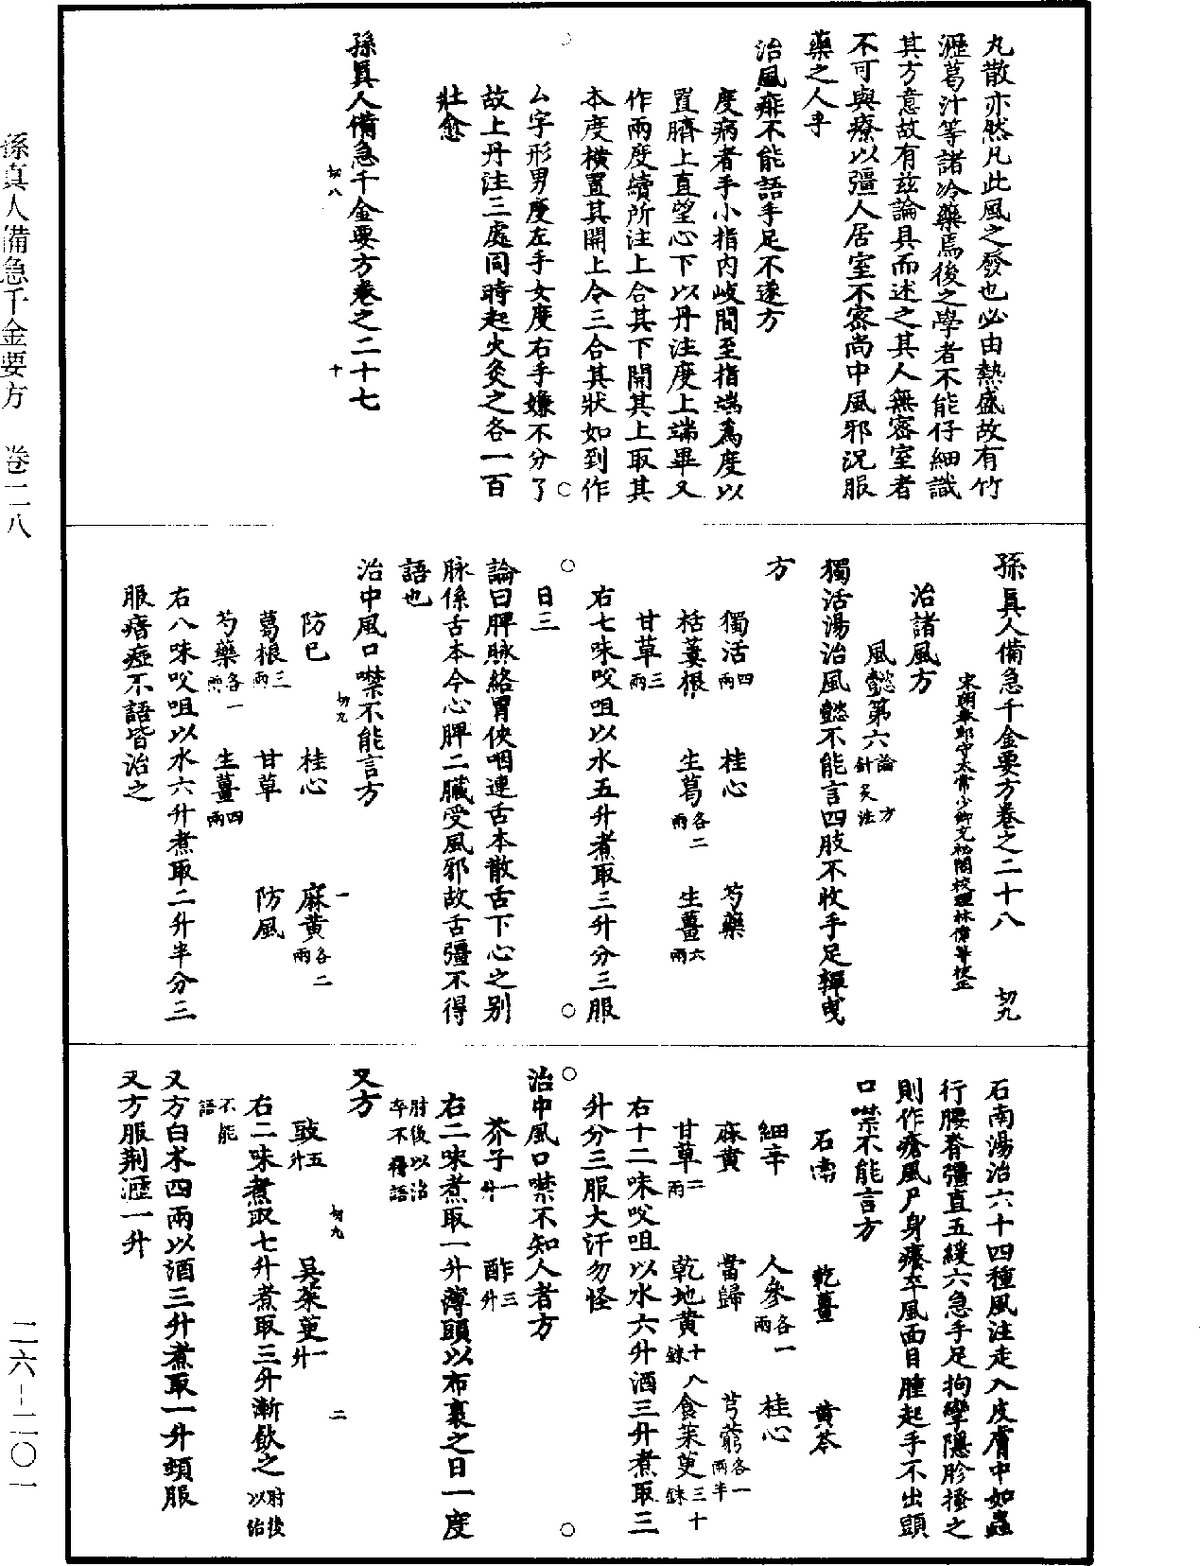 丸散亦然凡此風之發也必由熱盛故有竹
瀝葛汁等諸冷藥焉後之學者不能仔細識
其方意故有茲論具而述之其人無密室者
不可與療以彊人居室不密尚中風邪況服
藥之人乎
治風痱不能語手足不遂方
度病者手小指內岐間至指端為度以
置臍上直望心下以丹注度上端畢又
作兩度續所注上合其下開其上取其
本度橫置其開上令三合其狀如到作
厶字形男度左手女度右手嫌不分了
故上丹注三處同時起火灸之各一百
壯愈
孫真人備急千金要方卷之二十七
切八 十
孫真人備急千金要方卷之二十八 切九
宋朝奉郎守太常少卿充秘閣校理林億等校正
治諸風方
風懿第六 論 方 針灸法
獨活湯治風懿不能言四肢不收手足嚲曳
方
獨活四兩 桂心 芍藥
栝蔞根 生葛各二兩 生薑六兩
甘草三兩
右七味㕮咀以水五升煮取三升分三服
日三
論曰脾脉絡胃俠咽連舌本散舌下心之别
脉係舌本今心脾二臟受風邪故舌彊不得
語也
治中風口噤不能言方
切九 一
防已 桂心 麻黃各二兩
葛根三兩 甘草 防風
芍藥各一兩 生薑四兩
右八味㕮咀以水六升煮取二升半分三
服瘖瘂不語皆治之
石南湯治六十四種風注走入皮膚中如蟲
行腰脊彊直五緩六急手足拘攣隱胗搔之
則作瘡風尸身癢卒風面目腫起手不出頭
口噤不能言方
石南 乾薑 黃芩
細辛 人參各一兩 桂心
麻黃 當歸 芎藭各一兩半
甘草二兩 乾地黃十八銖 食茱萸三十銖
右十二味㕮咀以水六升酒三升煮取三
升分三服大汗勿怪
治中風口噤不知人者方
芥子一升 酢三升
右二味煮取一升薄頭以布裹之日一度
肘後以治卒不得語
又方
切九 二
豉五升 吳茱萸一升
右二味煮取七升煮取三升漸飲之肘後以治
不能語
又方白术四兩以酒三升煮取一升頓服
又方服荆瀝一升
孫真人備急千金要方 卷二八
二六-二〇一